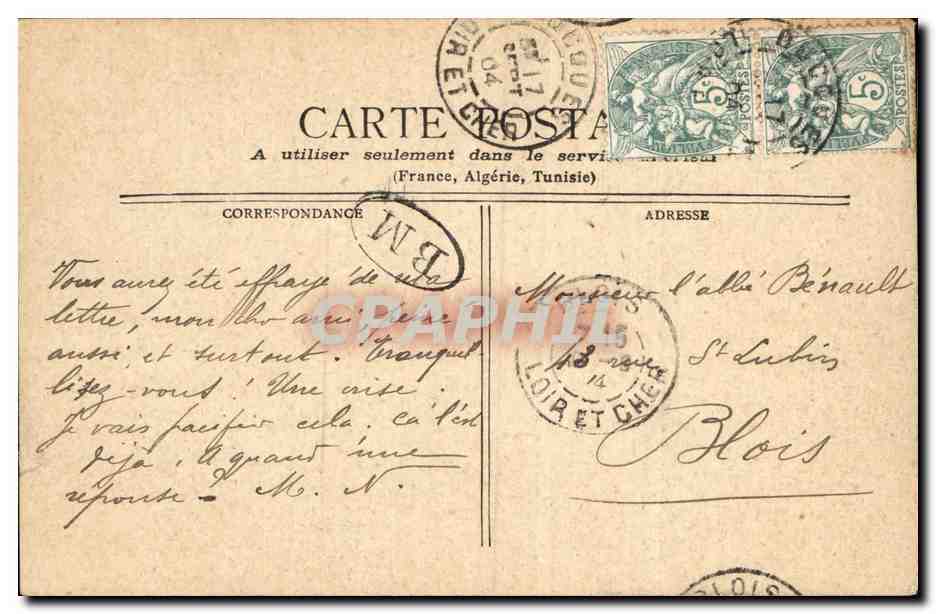 CARTE POSTA
A utiliser seulement dans le servi
(France, Algérie, Tunisie)
CORRESPONDANCE
ADRESSE
B M
Vous aurez été effrayé de ma
lettre, mon cher ami, dame
aussi et surtout. Tranquil-
lisez-vous! Une crise.
Je vais pacifier cela, ça l'est
déjà. A quand une
réponse? M. N.
Monsieur l'abbé Bénault
St Lubin
Blois
LOIR ET CHER
17
04
5c
POSTES
5c
POSTES
BLOIS
LOIR ET CHER
BLOIS
CPAPHIL